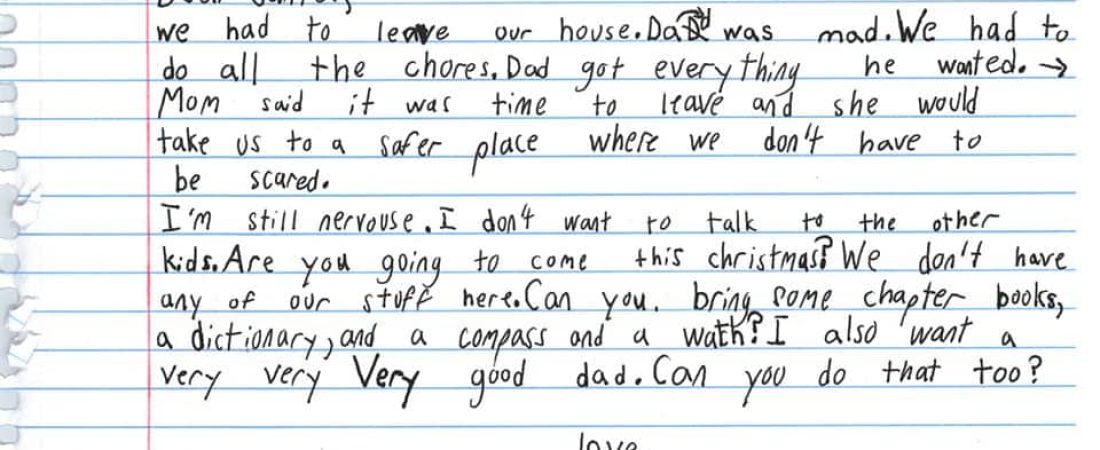 we had to leave our house. Dad was mad. We had to
do all the chores. Dad got everything he wanted. →
Mom said it was time to leave and she would
take us to a safer place where we don't have to
be scared.
I'm still nervouse. I don't want to talk to the other
kids. Are you going to come this christmas? We don't have
any of our stuff here. Can you. bring some chapter books,
a dictionary, and a compass and a wath? I also want a
very very Very good dad. Can you do that too?
love